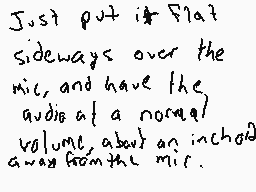 Just put it flat
sideways over the
mic, and have the
audio at a normal
volume, about an inch or
away from the mic.